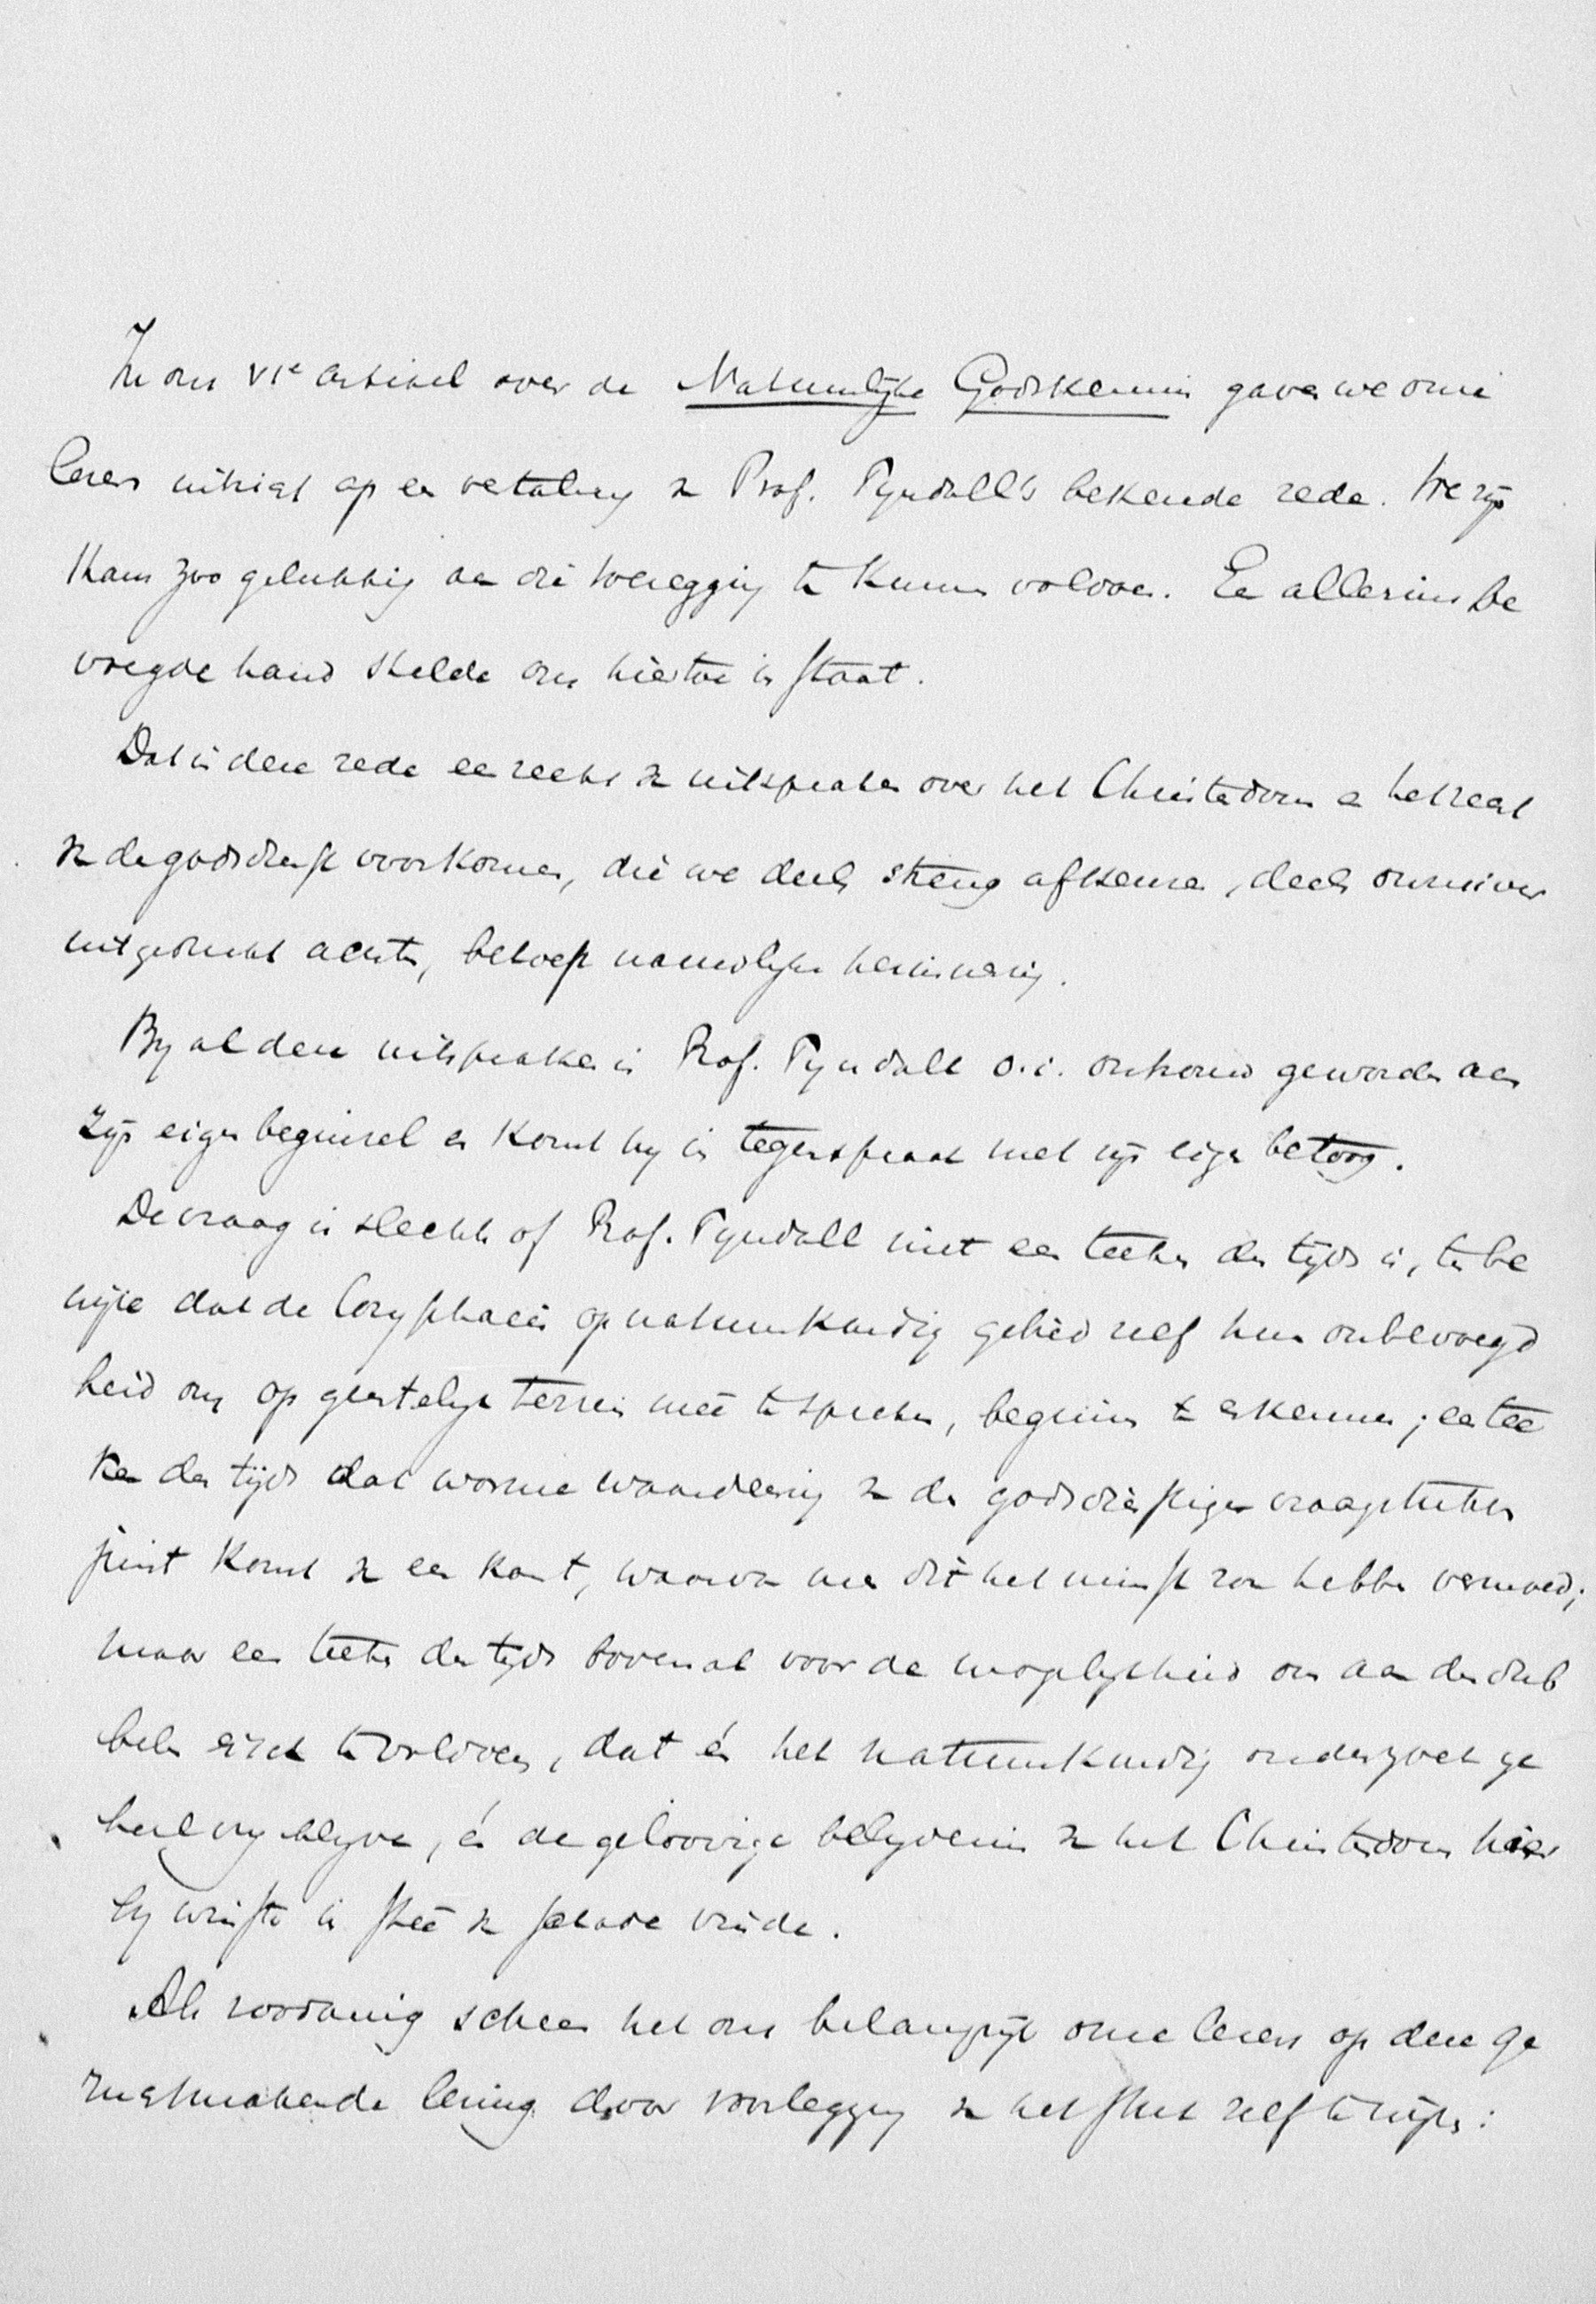 In ons VIe artikel over de Natuurlijke Godskennis gaven we onze
lezers uitzigt op een vertaling van Prof. Tyndall's bekende rede. We zijn
thans zoo gelukkig aan die toezegging te kunnen voldoen. Een alleszins be
voegde hand stelde ons hiertoe in staat.
Dat in deze rede een reeks van uitspraken over het Christendom en het regt
van de godsdienst voorkomen, die we deels streng afkeuren, deels onzuiver
uitgedrukt achten, behoeft nauwlijks herinnering.
By al deze uitspraken is Prof. Tyndall o.i. ontrouw geworden aan
zijn eigen beginsel en komt hy in tegenspraak met zijn eigen betoog.
De vraag is slechts of Prof. Tyndall niet een teeken des tijds is, ten be
wijze dat de Coryphaeën op natuurkundig gebied zelf hun onbevoegd
heid om op geestelijk terrein meê te spreken, beginnen te erkennen; een tee
ken des tijds dat warme waardeering van de godsdienstige vraagstukken
juist komt van een kant, waarvan men dit het minst zou hebben vermoed;
maar een teeken des tijds bovenal voor de mogelykheid om aan den dub
belen eisch te voldoen, dat én het natuurkundig onderzoek ge
heel vry blyve, én de geloovige belydenis van het Christendom hier
by winste in steê van schade vinde.
Als zoodanig scheen het ons belangrijk onze lezers op deze ge
rustmakende lezing door voorlegging van het stuk zelf te wijzen: